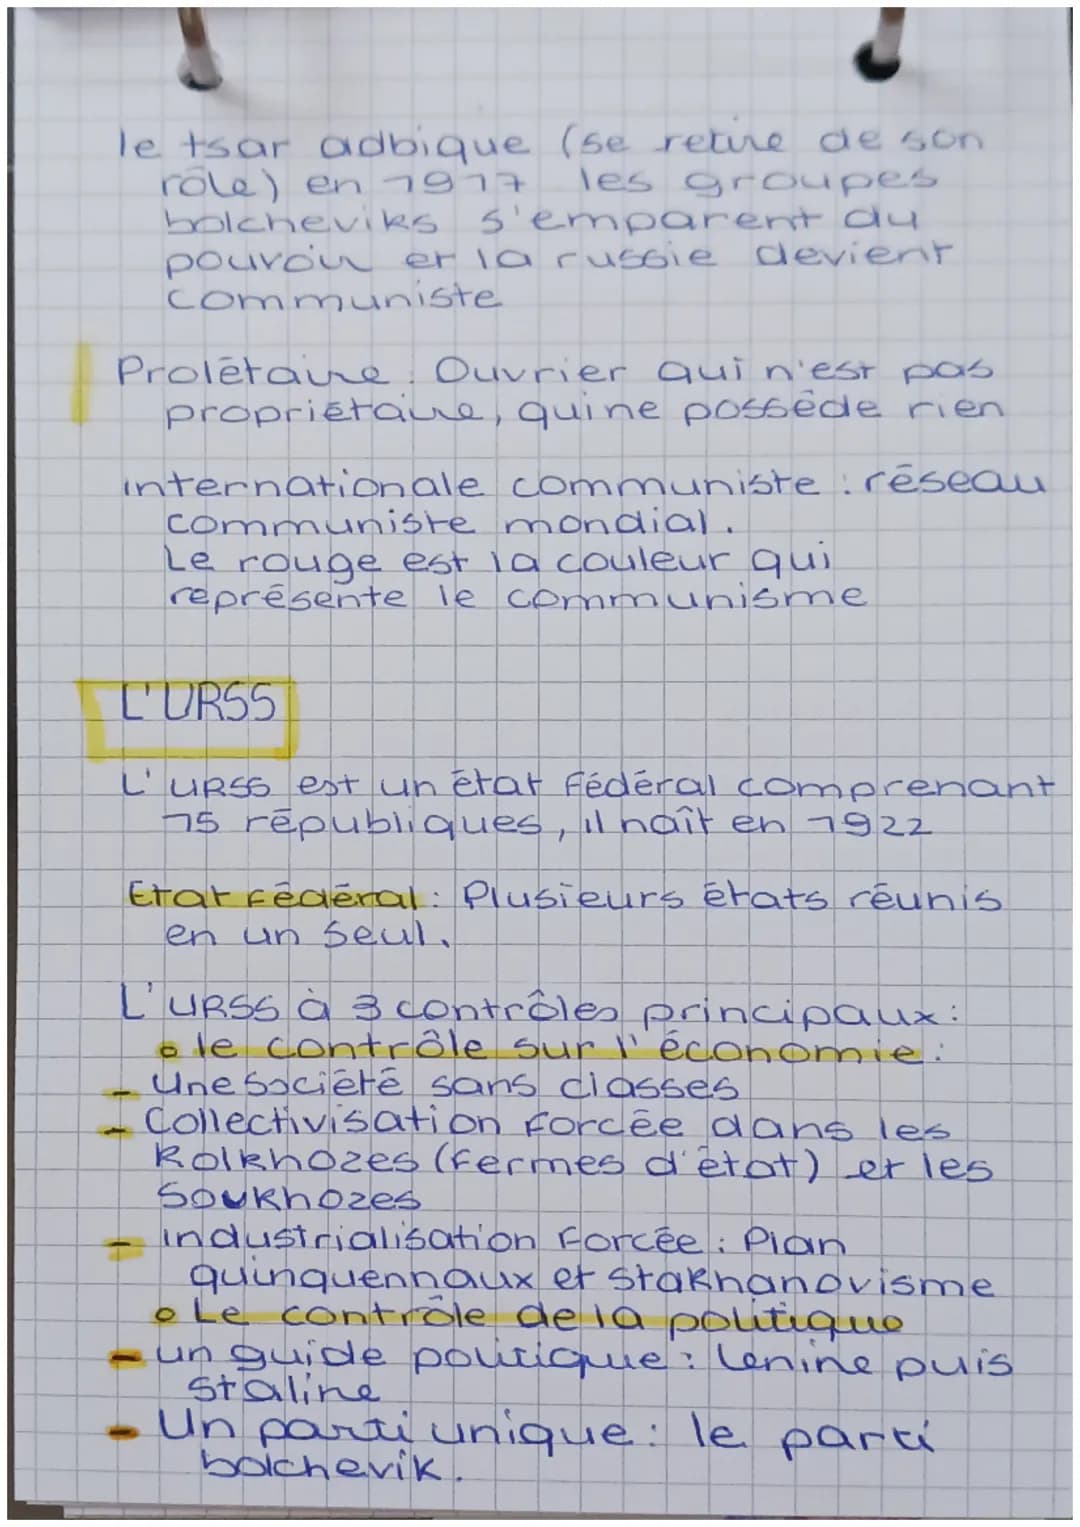 le tsar adbique (se retire de son
rôle) en 1917 les groupes
bolcheviks s'emparent du
pouvoir et la russie devient
communiste
Prolétaire : Ouvrier qui n'est pas
propriétaire, qui ne possède rien
internationale communiste : réseau
communiste mondial.
Le rouge est la couleur qui
représente le communisme
L'URSS
L'URSS est un état fédéral comprenant
15 républiques, il naît en 1922
Etat fédéral : Plusieurs états réunis
en un seul.
L'URSS à 3 contrôles principaux :
• le contrôle sur l'économie :
- Une société sans classes
- Collectivisation forcée dans les
Kolkhozes (fermes d'état) et les
Soukhozes
- industrialisation forcée : Plan
quinquennaux et stakhanovisme
• Le contrôle de la politique
- un guide politique : Lénine puis
staline
- Un parti unique : le parti
bolchevik.